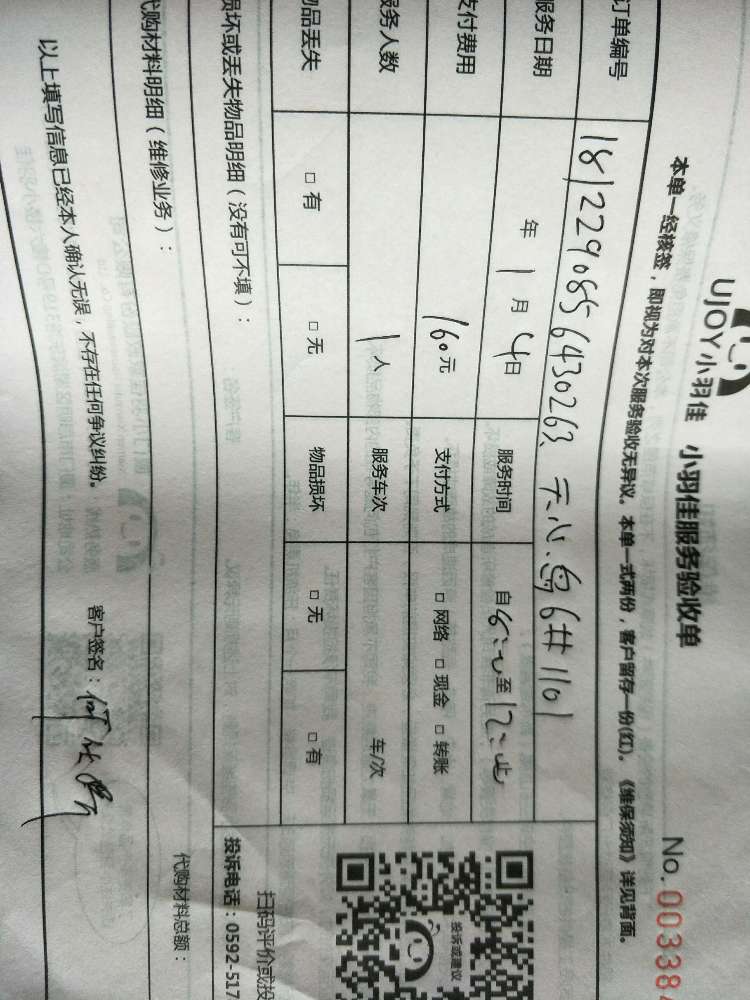 UJOY小羽佳 小羽佳服务验收单
No. 003384
本单一经核签，即视为对本次服务验收无异议。本单一式两份，客户留存一份(红)。《维保须知》详见背面。
订单编号 1812290856430263 天心岛6#1101
服务日期 年 1 月 4 日 服务时间 自 8: 至 12:
支付费用 160元 支付方式 □ 网络 □ 现金 □ 转账
服务人数 1人 服务车次 车/次
物品丢失 □ 有 □ 无 物品损坏 □ 无 □ 有
损坏或丢失物品明细（没有可不填）：
投诉或建议
扫码评价或投
投诉电话：0592-517
代购材料明细（维修业务）：
代购材料总额：
以上填写信息已经本人确认无误，不存在任何争议纠纷。 客户签名：